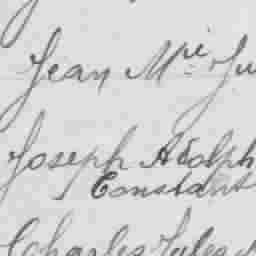 Jean M.rie Ju
Joseph Adolph
Constant
Charles Jules